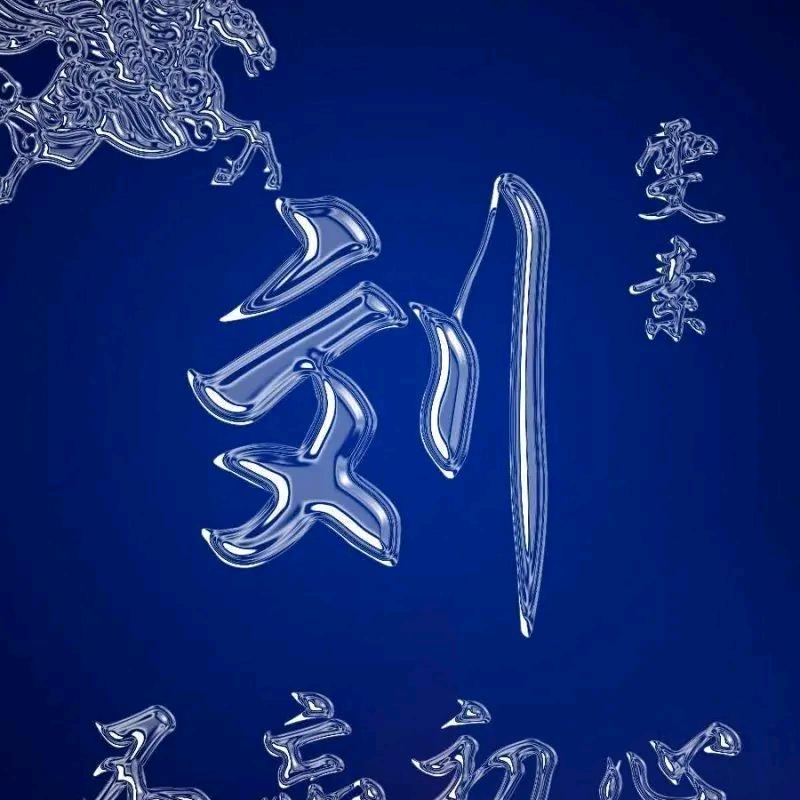 刘
雯素
不忘初心